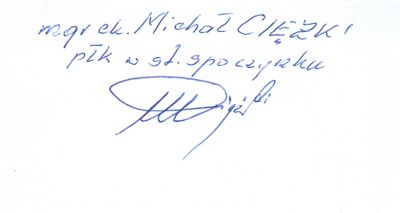 mgr ek. Michał CIĘŻKI
płk w st. spoczynku